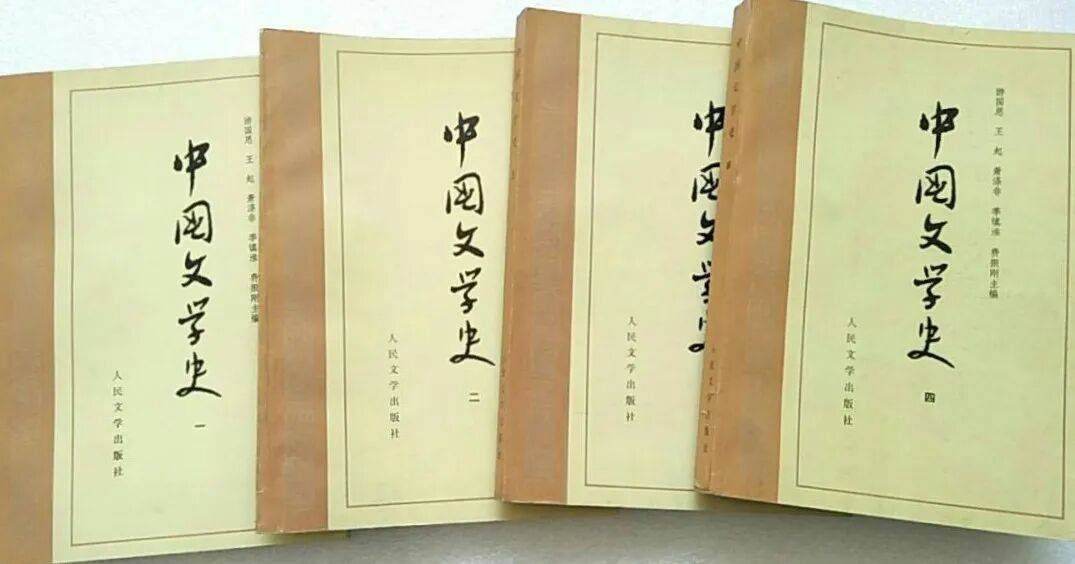 游国恩 王 起 萧涤非 季镇淮 费振刚主编
中国文学史 一
人民文学出版社
中国文学史 二
人民文学出版社
中国文学史
人民文学出版社
游国恩 王 起 萧涤非 季镇淮 费振刚主编
中国文学史 四
人民文学出版社